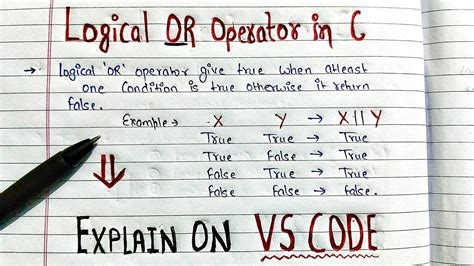 Logical OR Operator in C
→ Logical 'OR' operator give true when atleast
one Condition is true otherwise it return
false.
Example → X Y → X || Y
True True → True
True false → True
false True → True
false false → false.
EXPLAIN ON VS CODE